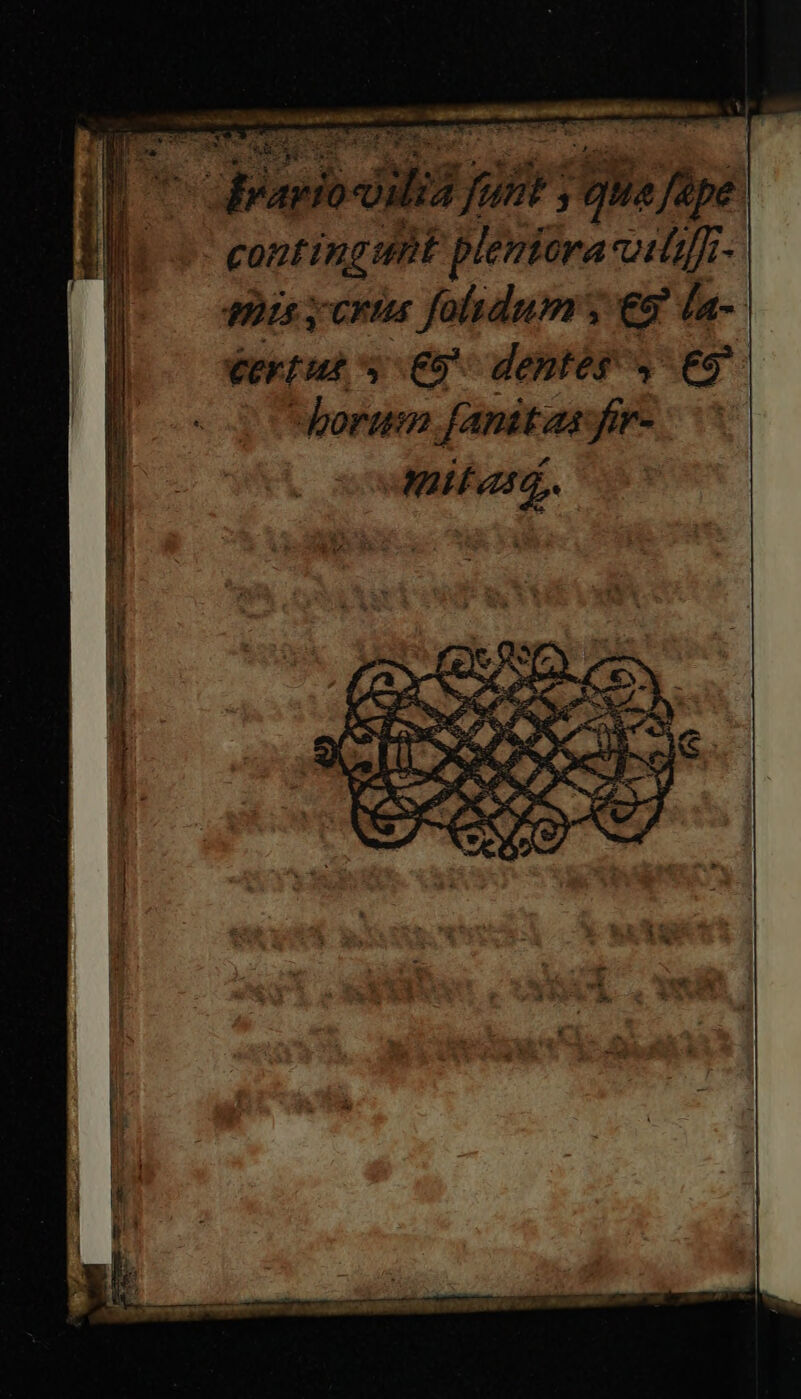 trario vilia ſunt, quæ ſæpe
contingunt pleniora viliſſi-
mis, crus ſolidum, & la-
certus, & dentes, & 
horum ſanitas fir-
mitasq́.